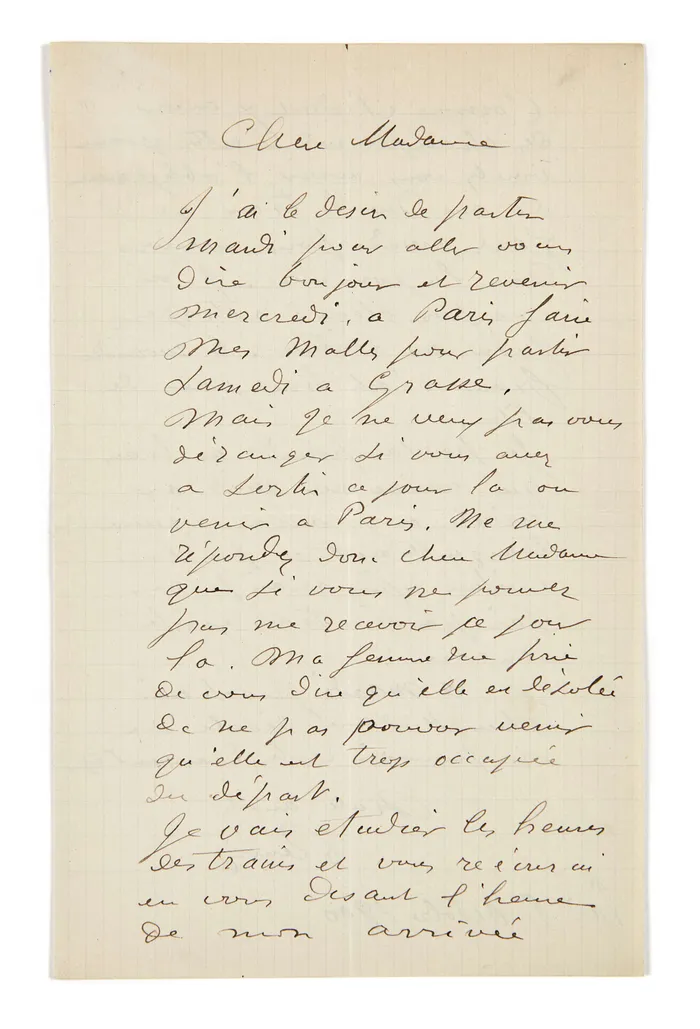 Chere Madame
J'ai le desir de partir
mardi pour aller vous
dire bonjour et revenir
mercredi, a Paris faire
mes malles pour partir
Samedi a Grasse.
Mais je ne veux pas vous
déranger si vous avez
a sortir ce jour la ou
venir a Paris. Ne me
répondez donc chere Madame
que si vous ne pouvez
pas me recevoir ce jour
la. Ma femme me prie
de vous dire qu'elle en désolée
de ne pas pouvoir venir
qu'elle est trop occupée
du départ.
Je vais etudier les heures
des trains et vous reécrirai
en vous disant l'heure
de mon arrivée